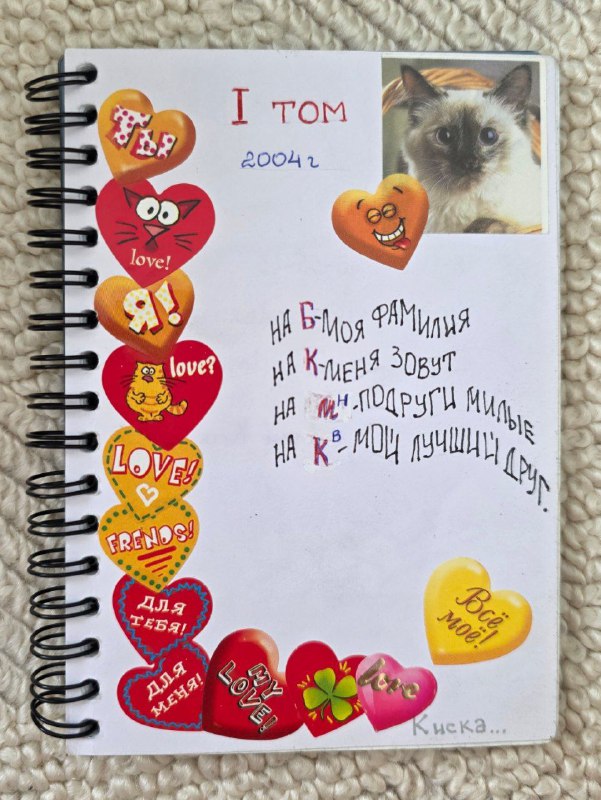 I том
2004 г
ТЫ
love!
Я!
love?
LOVE!
FRENDS!
ДЛЯ
ТЕБЯ!
ДЛЯ
МЕНЯ!
MY
LOVE!
love
На Б-моя фамилия
на К-меня зовут
на М н-подруги милые
на К в-мой лучший друг.
Всё
моё!
Киска...